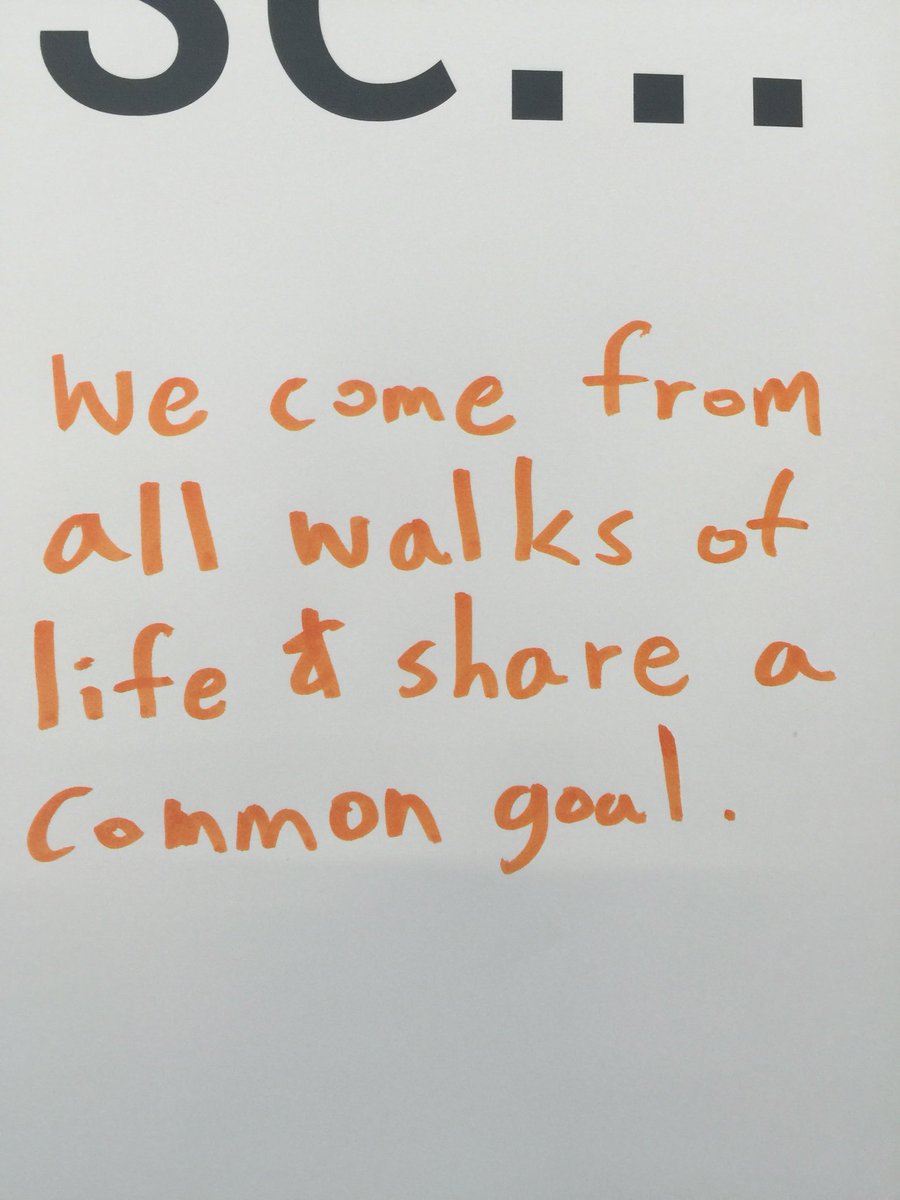 se...
We come from
all walks of
life & share a
Common goal.